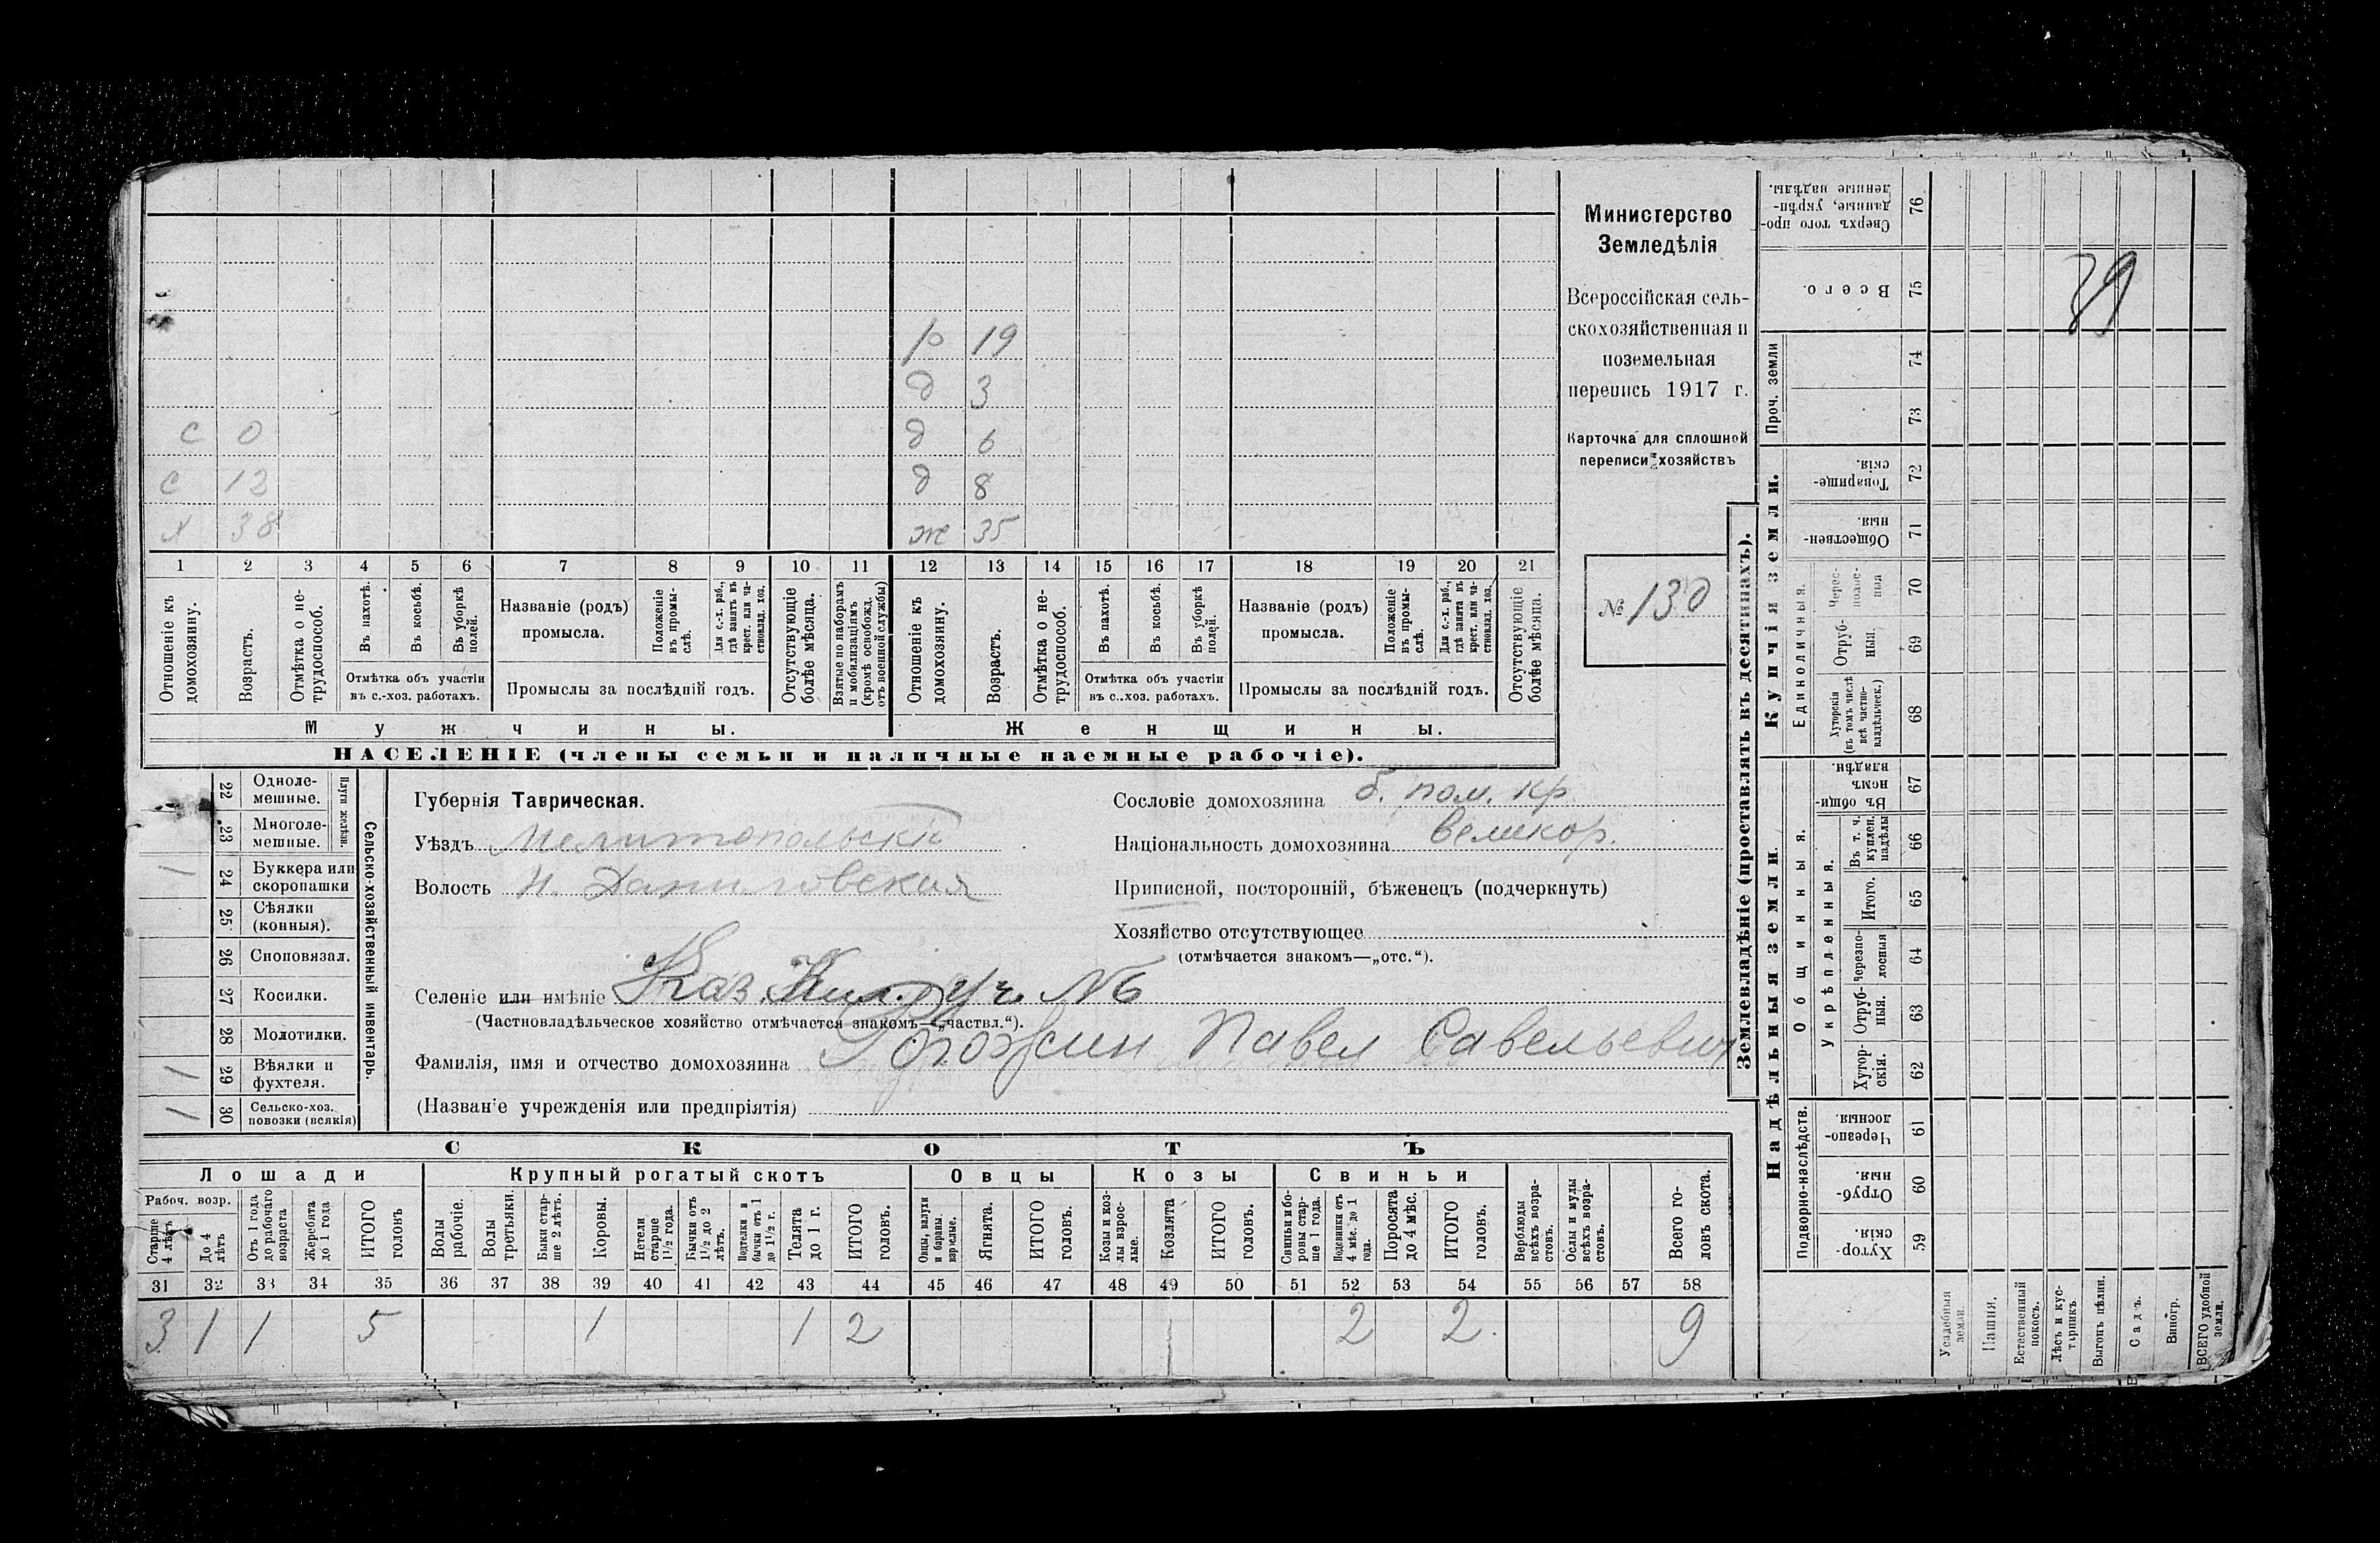 Министерство
Земледѣлія
Всероссійская сель-
скохозяйственная и
поземельная
перепись 1917 г.
Карточка для сплошной
переписи хозяйствъ
№ 130
39
р 19
д 3
с 0 д 6
с 13 д 8
х 38 ж 35
1 2 3 4 5 6 7 8 9 10 11 12 13 14 15 16 17 18 19 20 21
Отношеніе къ домохозяину.
Возрастъ.
Отмѣтка о не-трудоспособ.
Въ пахотѣ.
Въ косьбѣ.
Въ уборкѣ полей.
Отмѣтка объ участіи
въ с.-хоз. работахъ.
Названіе (родъ)
промысла.
Положеніе въ промы-слѣ.
Для с.-х. раб., гдѣ занятъ въ крест. или ча-стновлад. хоз.
Промыслы за послѣдній годъ.
Отсутствующіе болѣе мѣсяца.
Взятые по наборамъ и мобилизаціямъ (кромѣ освобожд. отъ военной службы)
Отношеніе къ домохозяину.
Возрастъ.
Отмѣтка о не-трудоспособ.
Въ пахотѣ.
Въ косьбѣ.
Въ уборкѣ полей.
Отмѣтка объ участіи
въ с.-хоз. работахъ.
Названіе (родъ)
промысла.
Положеніе въ промы-слѣ.
Для с.-х. раб., гдѣ занята въ крест. или ча-стновлад. хоз.
Промыслы за послѣдній годъ.
Отсутствующіе болѣе мѣсяца.
Мужчины. Женщины.
НАСЕЛЕНІЕ (члены семьи и наличные наемные рабочіе).
Сельско-хозяйственный инвентарь.
Плуги желѣзн.
22 Одноле-мешные.
23 Многоле-мешные.
/ 24 Буккера или скоропашки
25 Сѣялки (конныя).
26 Сноповязал.
27 Косилки.
28 Молотилки.
/ 29 Вѣялки и фухтеля.
/ 30 Сельско-хоз. повозки (всякія)
Губернія Таврическая.
Уѣздъ Мелитопольскій
Волость Н. Даниловская
Сословіе домохозяина б. пом. кр.
Національность домохозяина великор.
Приписной, посторонній, бѣженецъ (подчеркнуть)
Хозяйство отсутствующее
(отмѣчается знакомъ—„отс.“).
Селеніе или имѣніе Каз. Уч. №6
(Частновладѣльческое хозяйство отмѣчается знакомъ—„частвл.“).
Фамилія, имя и отчество домохозяина Рогожин Павел Савельевич
(Названіе учрежденія или предпріятія)
СКОТЪ
Лошади Крупный рогатый скотъ Овцы Козы Свиньи
Рабоч. возр.
Старше 4 лѣтъ
До 4 лѣтъ
Отъ 1 года до рабочаго возраста
Жеребята до 1 года
ИТОГО головъ
Волы рабочіе.
Волы третьяки.
Быки стар-ше 2 лѣтъ.
Коровы.
Нетели старше 1½ года.
Бычки отъ 1½ до 2 лѣтъ.
Подтелки и бычки отъ 1 до 1½ г.
Телята до 1 г.
ИТОГО головъ.
Овцы, валухи и бараны взрослые.
Ягнята.
ИТОГО головъ.
Козы и коз-лы взрос-лые.
Козлята
ИТОГО головъ.
Свиньи и бо-ровы стар-ше 1 года.
Подсвинки отъ 4 мѣс. до 1 года.
Поросята до 4 мѣс.
ИТОГО головъ.
Верблюды всѣхъ возра-стовъ.
Ослы и мулы всѣхъ возра-стовъ.
Всего го-ловъ скота.
31 32 33 34 35 36 37 38 39 40 41 42 43 44 45 46 47 48 49 50 51 52 53 54 55 56 57 58
3 1 1 5 1 1 2 2 2 9
Землевладѣніе (проставлять въ десятинахъ).
Купчія земли.
Надѣльныя земли.
Сверхъ того про-данные, укрѣп-ленные надѣлы. 76
Всего. 75
Проч. земли
74
73
Товарище-скія. 72
Обществен-ныя. 71
Единоличныя.
Черес-полос-ныя 70
Отруб-ныя. 69
Хуторскія (въ томъ числѣ всѣ частно-владѣльческ.) 68
Общинныя.
Въ общи-номъ владѣн. 67
Укрѣпленныя.
Въ т. ч. куплен. надѣлы 66
Итого. 65
Черезпо-лосныя 64
Отруб-ныя. 63
Хутор-скія. 62
Подворно-наслѣдств.
Черезпо-лосныя 61
Отруб-ныя. 60
Хутор-скія. 59
Усадебныя земли.
Пашня.
Естественный покосъ.
Лѣсъ и кус-тарникъ.
Выгонъ цѣлин.
Садъ.
Виногр.
ВСЕГО удобной земли.